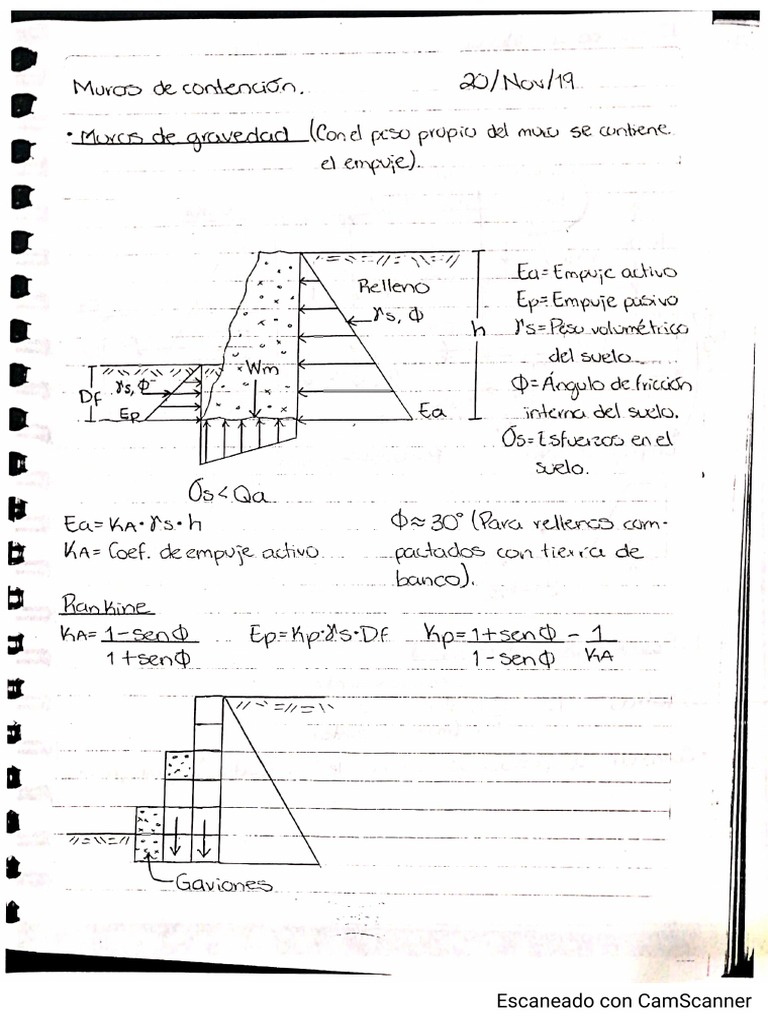 Muros de contención. 20/Nov/19
• Muros de gravedad (Con el peso propio del muro se contiene
el empuje).
Relleno
γs, Φ
h
Ea = Empuje activo
Ep = Empuje pasivo
γs = Peso volumétrico
del suelo
Φ = Ángulo de fricción
interna del suelo.
σs = Esfuerzos en el
suelo.
Df
γs, Φ
Ep
Wm
Ea
σs < Qa
Ea = KA · γs · h
KA = Coef. de empuje activo
Φ ≈ 30° (Para rellenos com-
pactados con tierra de
banco).
Rankine
KA = 1 - senΦ / 1 + senΦ Ep = Kp · γs · Df Kp = 1 + senΦ / 1 - senΦ - 1 / KA
Gaviones
Escaneado con CamScanner